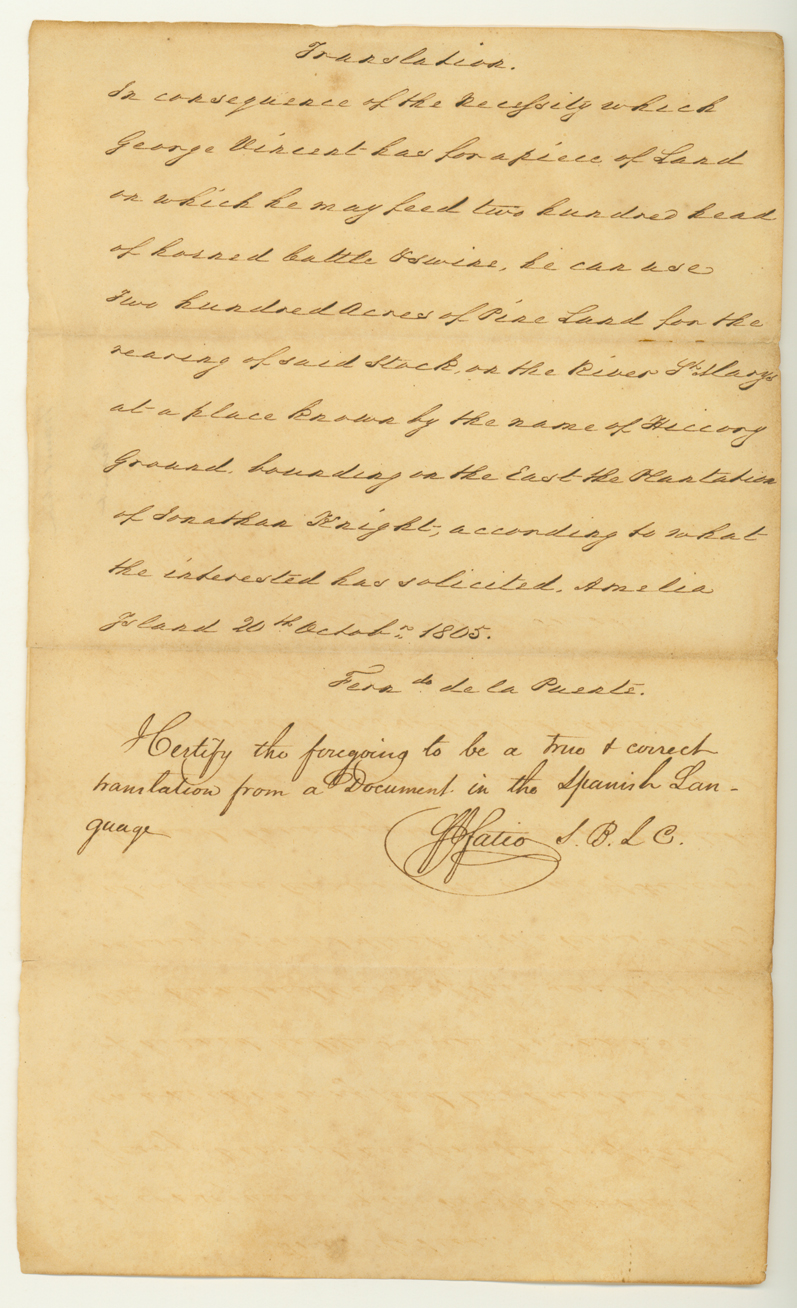 Translation.
In consequence of the Necessity which
George Vincent has for a piece of Land
on which he may feed two hundred head
of horned Cattle & swine, he can use
Two hundred Acres of Pine Land for the
rearing of said Stock, on the River St. Marys
at a place known by the name of Hiccory
Ground. bounding on the East the Plantation
of Jonathan Knight, according to what
the interested has solicited. Amelia
Island 20th Octobr. 1805.
Ferndo de la Puente.
I Certify the foregoing to be a true & correct
translation from a Document in the Spanish Lan-
guage
Fatio S. B. L C.